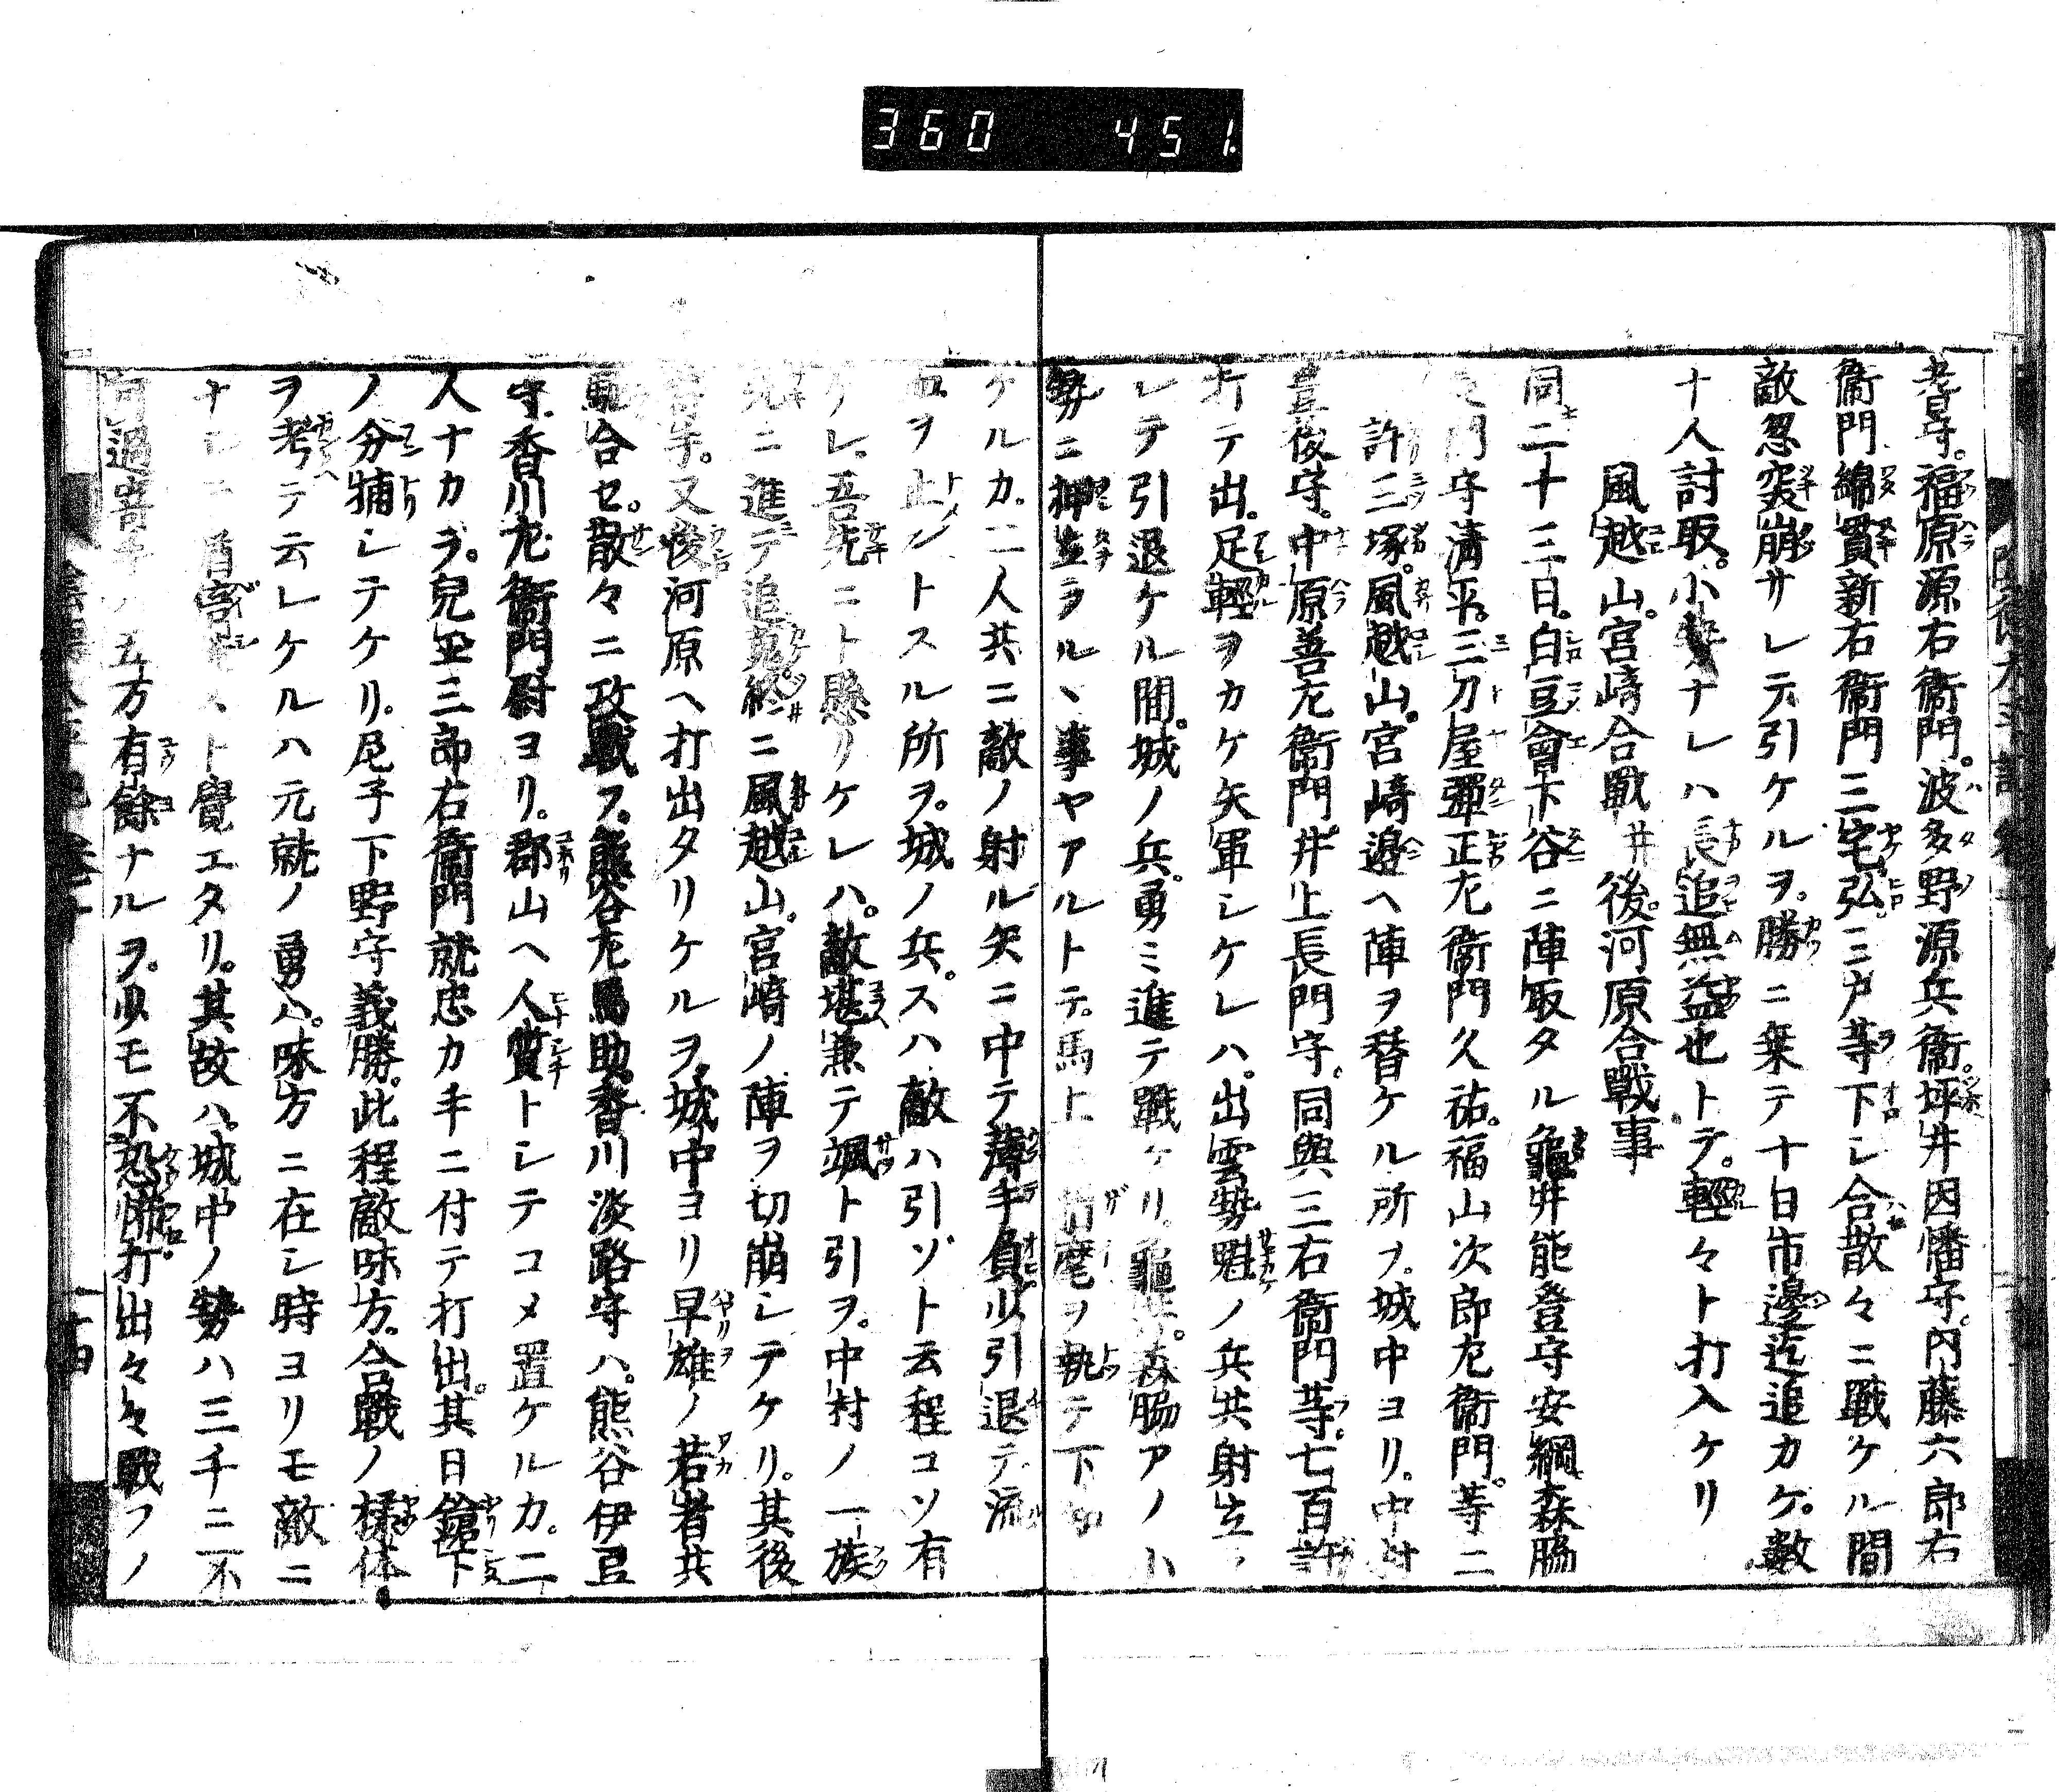 360 451
守。福原源右衞門。波多野源兵衞。坪井因幡守。内藤六郎右
衞門綿貫新右衞門三宅弘。三戸等下シ合散々ニ戰ケル間
敵忽突崩サレテ引ケルヲ。勝ニ乗テ十日市邊迄追カケ。數
十人討取。小勢ナレハ長追無益也トテ。輕々ト打入ケリ
風越山。宮﨑合戰井後河原合戰事
同二十三日。白豆會下谷ニ陣取タル龜井能登守安綱森脇
門守清平。三刀屋彈正左衞門久祐。福山次郎左衞門。等二
許三塚。風越山。宮﨑邊ヘ陣ヲ替ケル所ヲ。城中ヨリ。中村
豊後守。中原善左衞門。井上長門守。同與三右衞門等。七百許
打テ出。足輕ヲカケ矢軍シケレハ。出雲勢魁ノ兵共射立ラ
レテ引退ケル間。城ノ兵。勇ミ進テ戰ケリ。龜井。森脇アノ小
勢ニ押立ラルヽ事ヤアルトテ。馬上 麾ヲ執テ下知
ケルカ。二人共ニ敵ノ射ル矢ニ中テ薄手負少引退テ。流
血ヲ止ントスル所ヲ。城ノ兵。スハ敵ハ引ゾト云程コソ有
ケレ。吾先ニト懸リケレハ。敵堪兼テ颯ト引ヲ。中村ノ一族
先ニ進テ追 終ニ風越山。宮﨑ノ陣ヲ切崩シテケリ。其後
又後河原ヘ打出タリケルヲ。城中ヨリ早雄ノ若者共
駈合セ。散々ニ攻戰フ。熊谷左馬助。香川淡路守ハ。熊谷伊豆
守。香川左衞門尉ヨリ。郡山ヘ人質トシテコメ置ケルカ。二
人ナカラ。兒玉三郎右衞門就忠カ手ニ付テ打出。其日鎗下
ノ分捕シテケリ。尼子下野守義勝。此程敵味方合戰ノ様体
ヲ考テ云レケルハ元就ノ勇ハ。味方ニ在シ時ヨリモ敵ニ
ト覺エタリ。其故ハ。城中ノ勢ハ三千ニ不
過 五万有餘ナルヲ。少モ不恐怖打出々々戰フノ